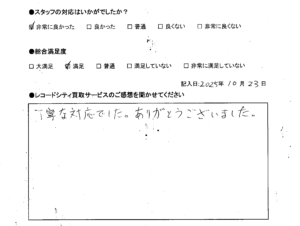 ●スタッフの対応はいかがでしたか？
☑非常に良かった □良かった □普通 □良くない □非常に良くない
●総合満足度
□大満足 ☑満足 □普通 □満足していない □非常に満足していない
記入日:2025年 10月 23日
●レコードシティ買取サービスのご感想を聞かせてください
寧な対応でした。ありがとうございました。